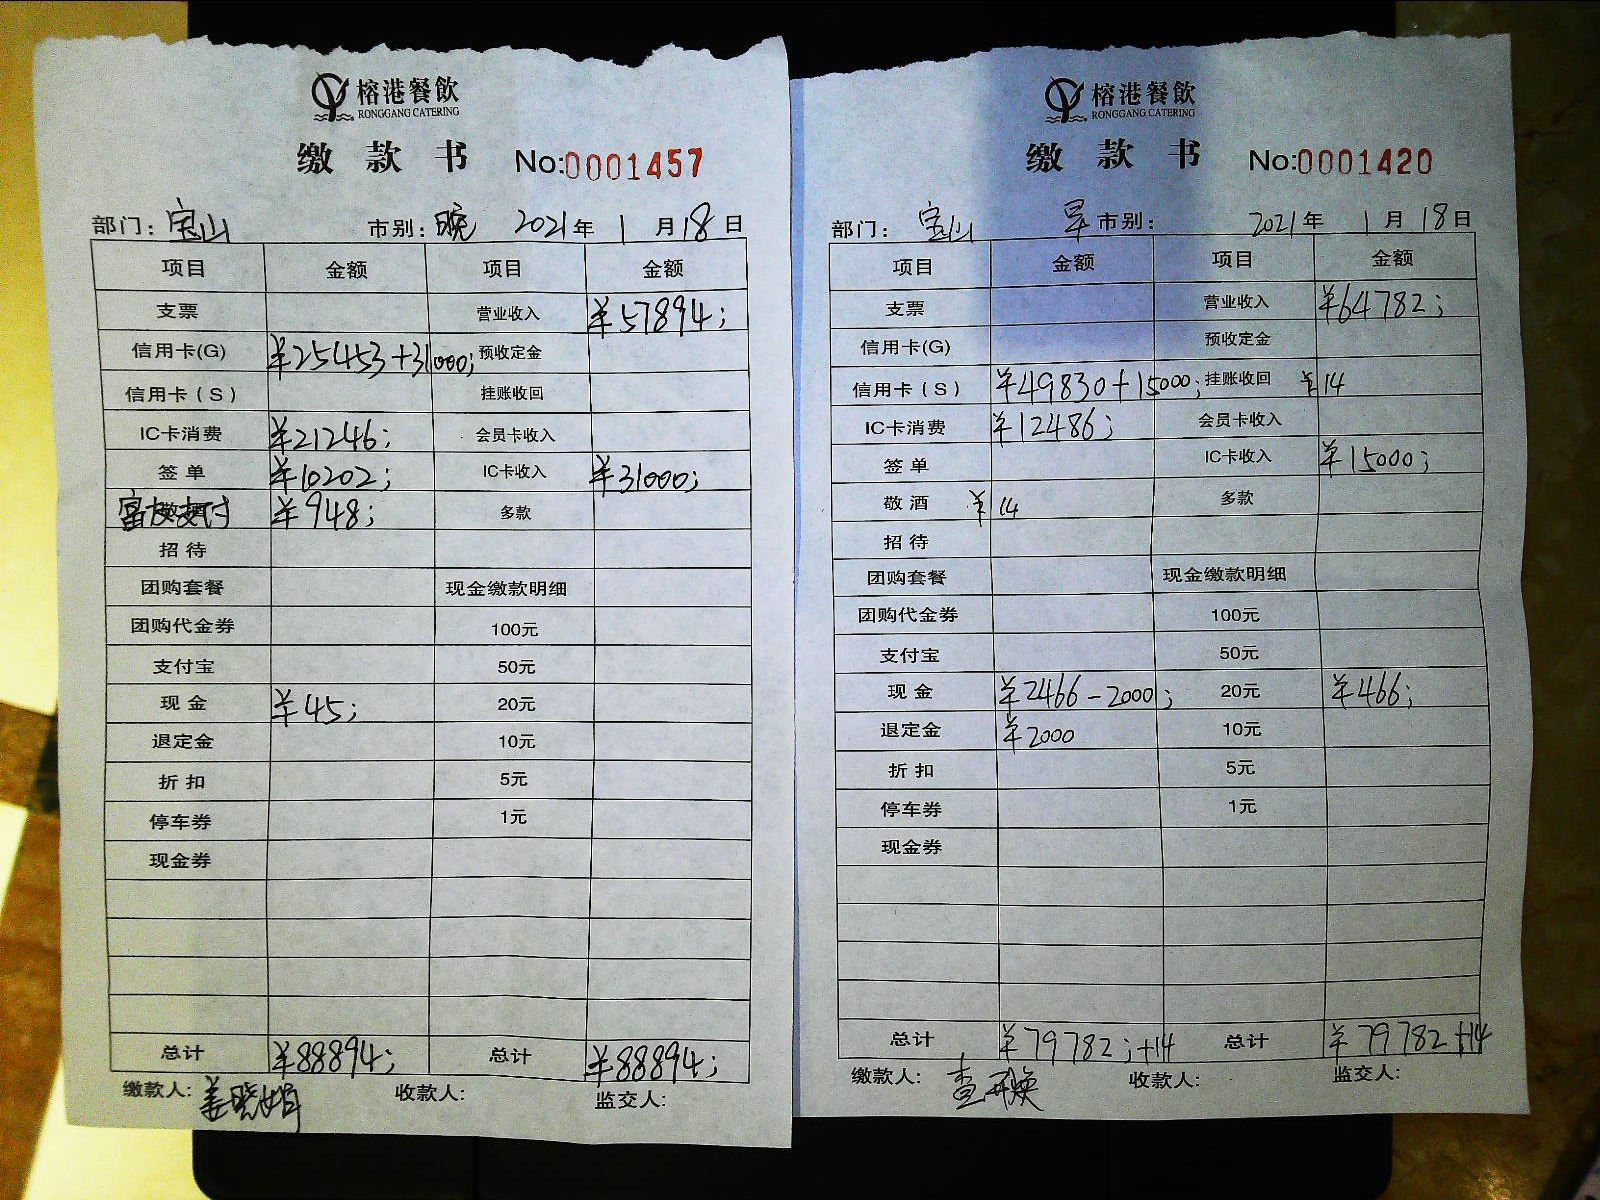 榕港餐飲
RONGGANG CATERING
缴款书 No:0001457
部门：宝山 市别：晚 2021年1月18日
项目 金额 项目 金额
支票 营业收入 ¥57894;
信用卡(G) ¥25453+31000; 预收定金
信用卡（S） 挂账收回
IC卡消费 ¥21246; 会员卡收入
签单 ¥10202; IC卡收入 ¥31000;
富友支付 ¥948; 多款
招待
团购套餐 现金缴款明细
团购代金券 100元
支付宝 50元
现金 ¥45; 20元
退定金 10元
折扣 5元
停车券 1元
现金券
总计 ¥88894; 总计 ¥88894;
缴款人: 姜晓娟 收款人: 监交人:
榕港餐飲
RONGGANG CATERING
缴款书 No:0001420
部门：宝山 早市别： 2021年1月18日
项目 金额 项目 金额
支票 营业收入 ¥64782;
信用卡(G) 预收定金
信用卡（S） ¥49830+15000; 挂账收回 ¥14
IC卡消费 ¥12486; 会员卡收入
签单 IC卡收入 ¥15000;
敬酒 ¥14 多款
招待
团购套餐 现金缴款明细
团购代金券 100元
支付宝 50元
现金 ¥2466-2000; 20元 ¥466;
退定金 ¥2000 10元
折扣 5元
停车券 1元
现金券
总计 ¥79782;+14 总计 ¥79782+14
缴款人: 收款人: 监交人: